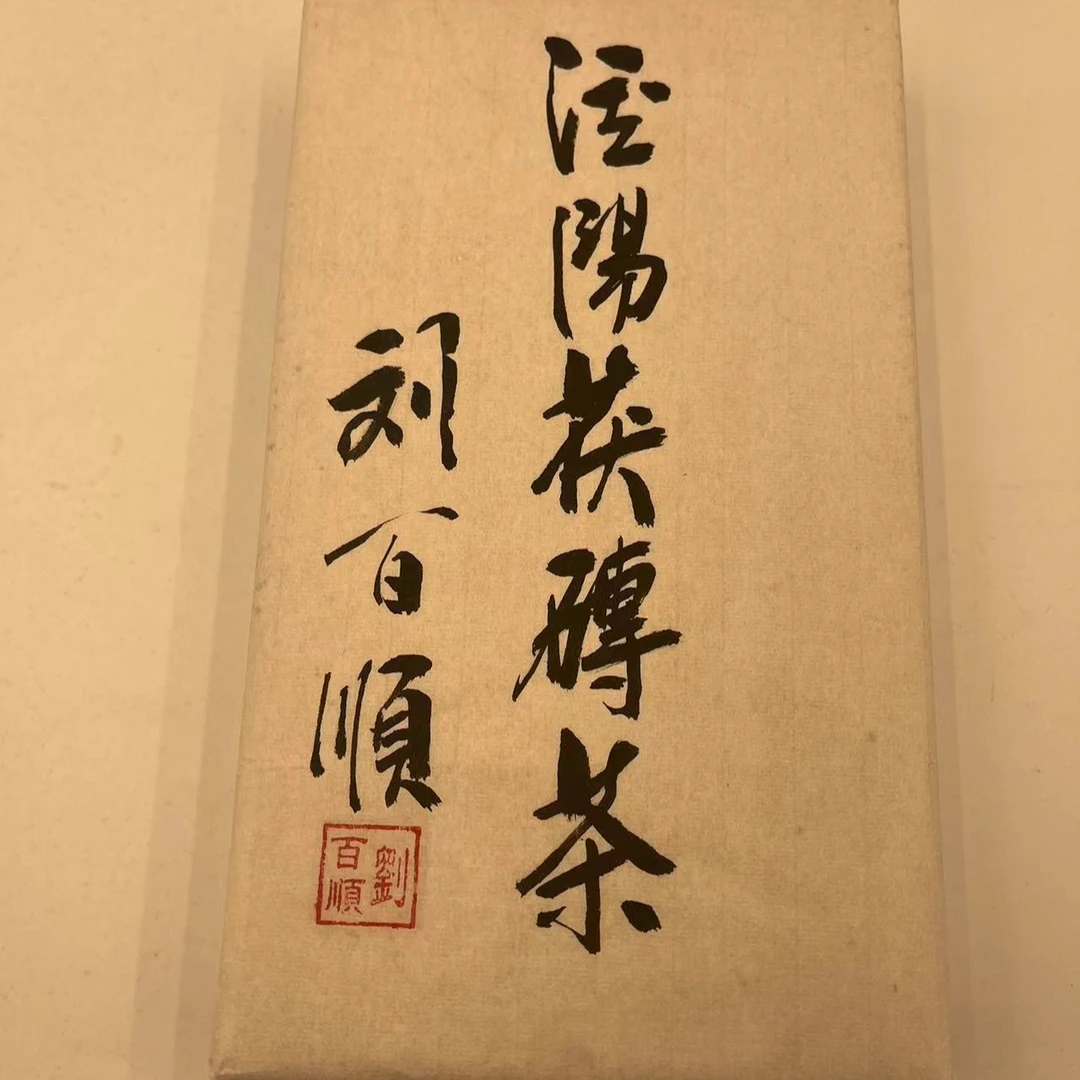 泾陽茯磚茶
刘百順
劉百順